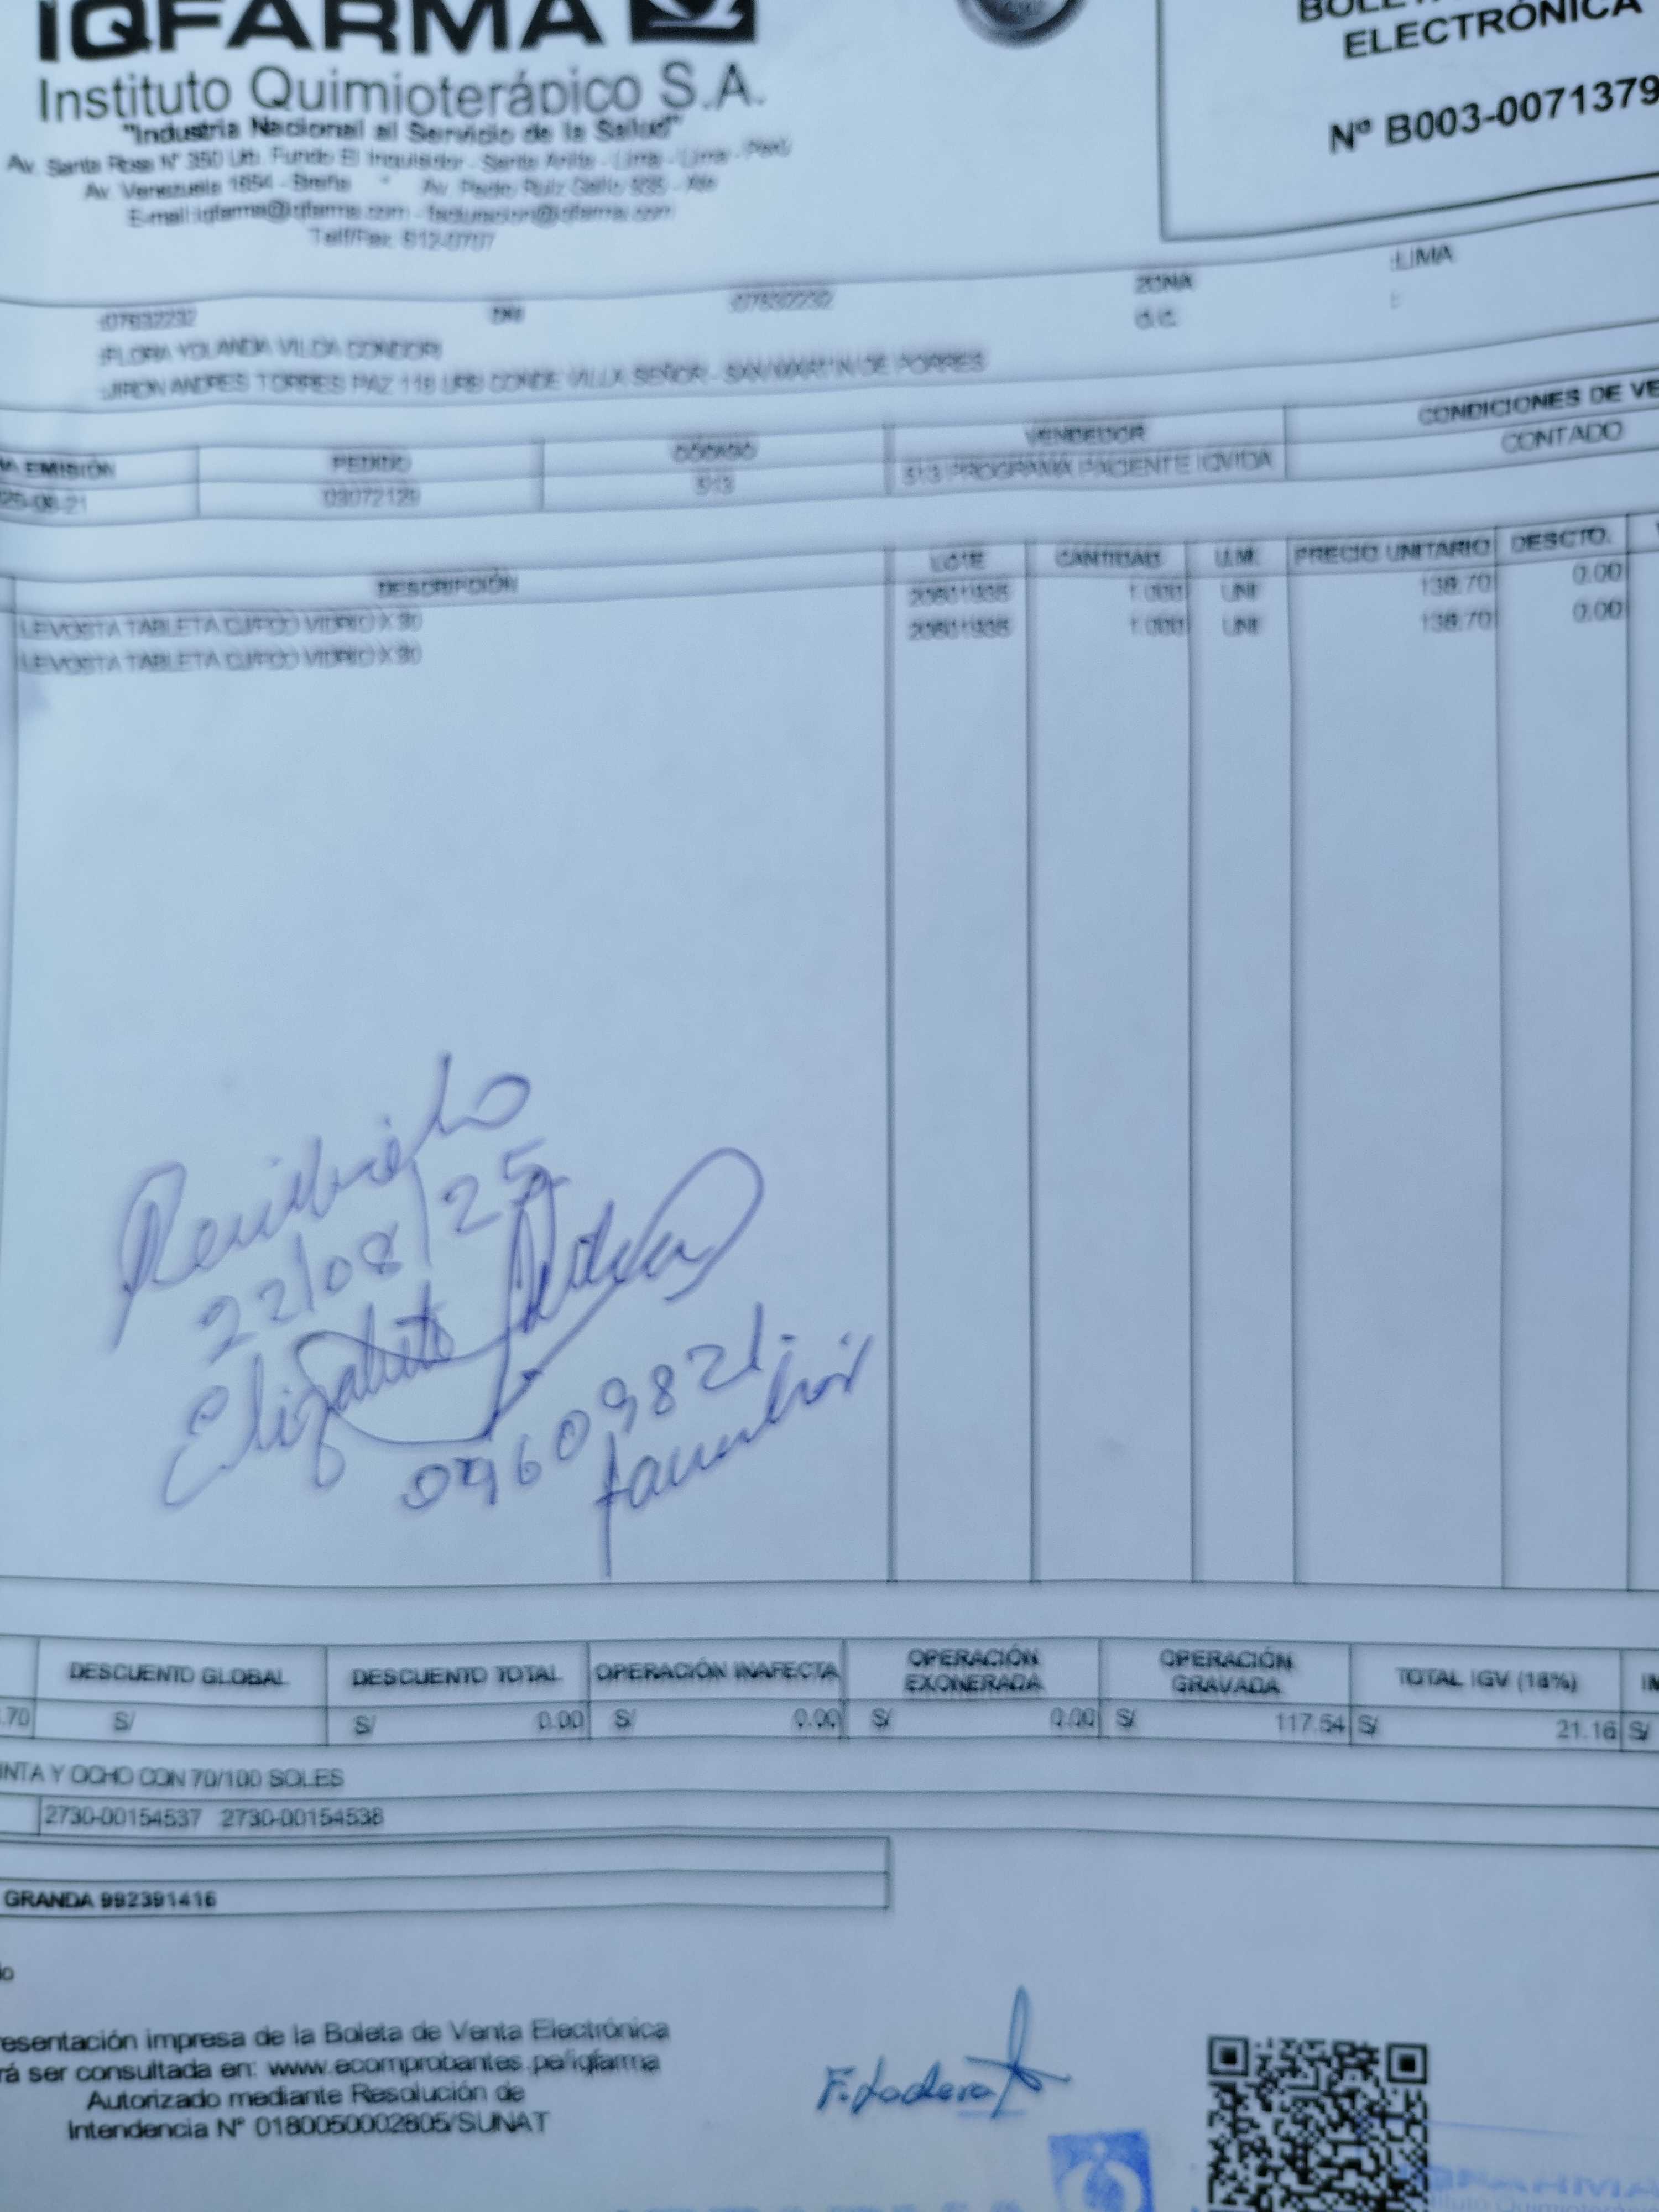 IQFARMA
BOLETA
ELECTRÓNICA
Instituto Quimioterápico S.A.
Nº B003-0071379
"Industria Nacional al Servicio de la Salud"
Av. Santa Rosa Nº 350 Urb. Fundo El Inquisidor - Santa Anita - Lima - Lima - Perú
Av. Venezuela 1854 - Breña * Av. Pedro Ruiz Gallo - Ate
E-mail:iqfarma@iqfarma.com - facturacion@iqfarma.com
Telf/Fax: 612-0707
:07632232 DNI :07632232 ZONA :LIMA
O/C :
:FLORA YOLANDA VILCA CONDORI
:JIRON ANDRES TORRES PAZ 118 URB CONDE VILLA SEÑOR - SAN MARTIN DE PORRES
EMISIÓN PEDIDO CÓDIGO VENDEDOR CONDICIONES DE VE
25-08-21 03072129 513 513 PROGRAMA PACIENTE IQVIDA CONTADO
DESCRIPCIÓN LOTE CANTIDAD U.M. PRECIO UNITARIO DESCTO.
LEVOSTA TABLETA CJ FCO VIDRIO X 30 1.000 UNI 138.70 0.00
LEVOSTA TABLETA CJ FCO VIDRIO X 30 1.000 UNI 138.70 0.00
Recibido
22/08/25
Elizabeth
09609821
familiar
DESCUENTO GLOBAL DESCUENTO TOTAL OPERACIÓN INAFECTA OPERACIÓN EXONERADA OPERACIÓN GRAVADA TOTAL IGV (18%) IM
.70 S/ S/ 0.00 S/ 0.00 S/ 0.00 S/ 117.54 S/ 21.16 S/
INTA Y OCHO CON 70/100 SOLES
2730-00154537 2730-00154538
GRANDA 992391416
esentación impresa de la Boleta de Venta Electrónica
rá ser consultada en: www.ecomprobantes.pe/iqfarma
Autorizado mediante Resolución de
Intendencia Nº 0180050002805/SUNAT